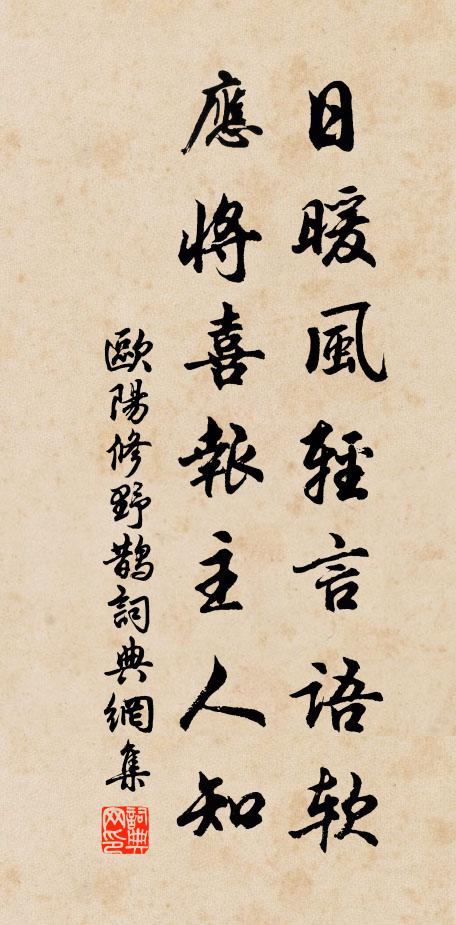 日暖風輕言語軟
應將喜報主人知
歐陽修野鵲詞典網集
詞典网印